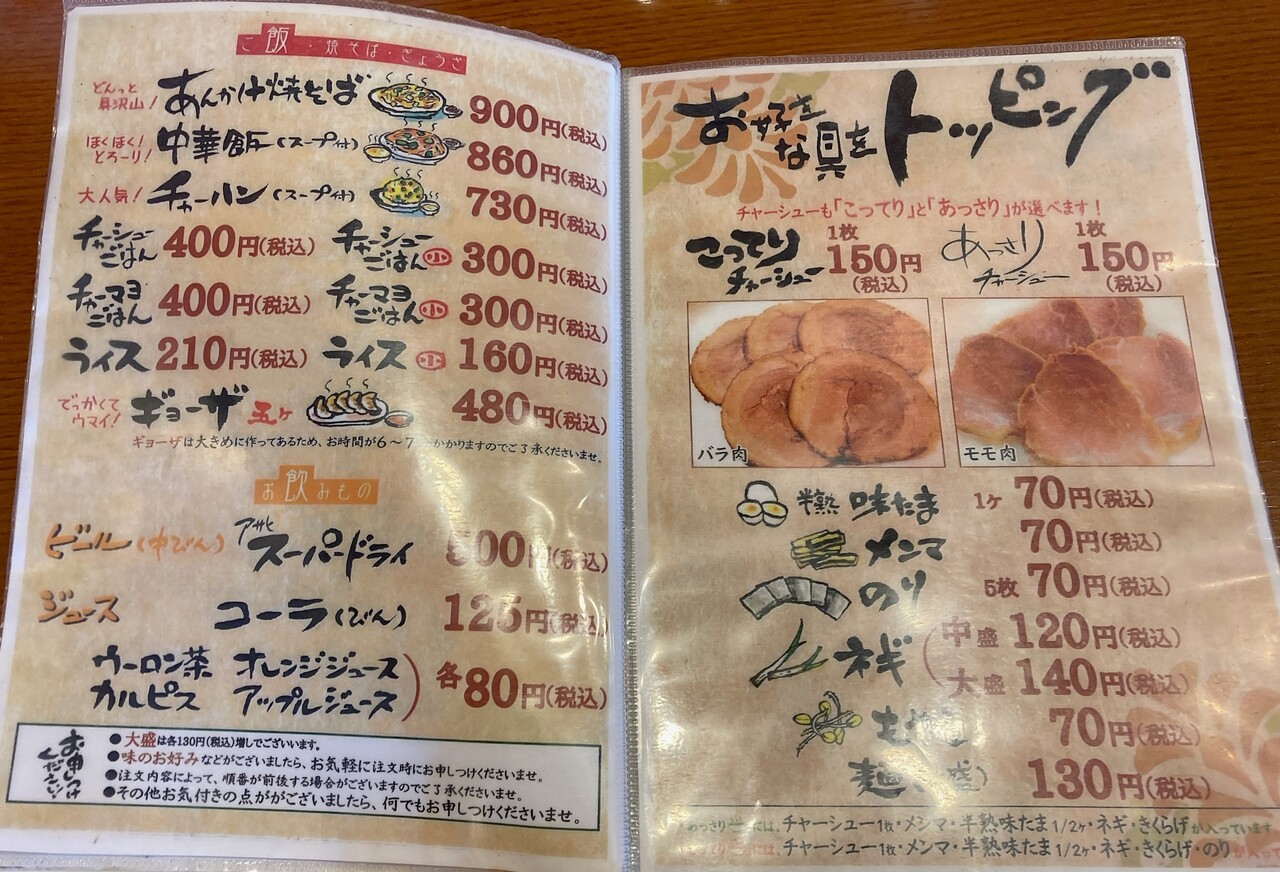 ご飯・焼そば・ぎょうざ
どんっと
具沢山!
あんかけ焼そば 900円(税込)
ほくほく!
とろーり!
中華飯(スープ付) 860円(税込)
大人気! チャーハン(スープ付) 730円(税込)
チャーシュー
ごはん 400円(税込)
チャーシュー
ごはん 小 300円(税込)
チャーマヨ
ごはん 400円(税込)
チャーマヨ
ごはん 小 300円(税込)
ライス 210円(税込) ライス 小 160円(税込)
でっかくて
ウマイ!
ギョーザ 五ヶ 480円(税込)
ギョーザは大きめに作ってあるため、お時間が6〜7 かかりますのでご了承くださいませ。
お飲みもの
ビール(中びん) アサヒ スーパードライ 500円(税込)
ジュース コーラ(びん) 125円(税込)
ウーロン茶 オレンジジュース
カルピス アップルジュース
各80円(税込)
お申しつけ
ください!
●大盛は各130円(税込)増しでございます。
●味のお好みなどがございましたら、お気軽に注文時にお申しつけくださいませ。
●注文内容によって、順番が前後する場合がございますのでご了承くださいませ。
●その他お気付きの点がございましたら、何でもお申しつけくださいませ。
お好きな具をトッピング
チャーシューも「こってり」と「あっさり」が選べます!
こってり
チャーシュー
1枚
150円
(税込)
あっさり
チャーシュー
1枚
150円
(税込)
バラ肉
モモ肉
半熟 味たま 1ヶ 70円(税込)
メンマ 70円(税込)
のり 5枚 70円(税込)
ネギ
中盛 120円(税込)
大盛 140円(税込)
70円(税込)
麺 盛) 130円(税込)
あっさり には、チャーシュー1枚・メンマ・半熟味たま1/2ヶ・ネギ・きくらげが入っています。
には、チャーシュー1枚・メンマ・半熟味たま1/2ヶ・ネギ・きくらげ・のり